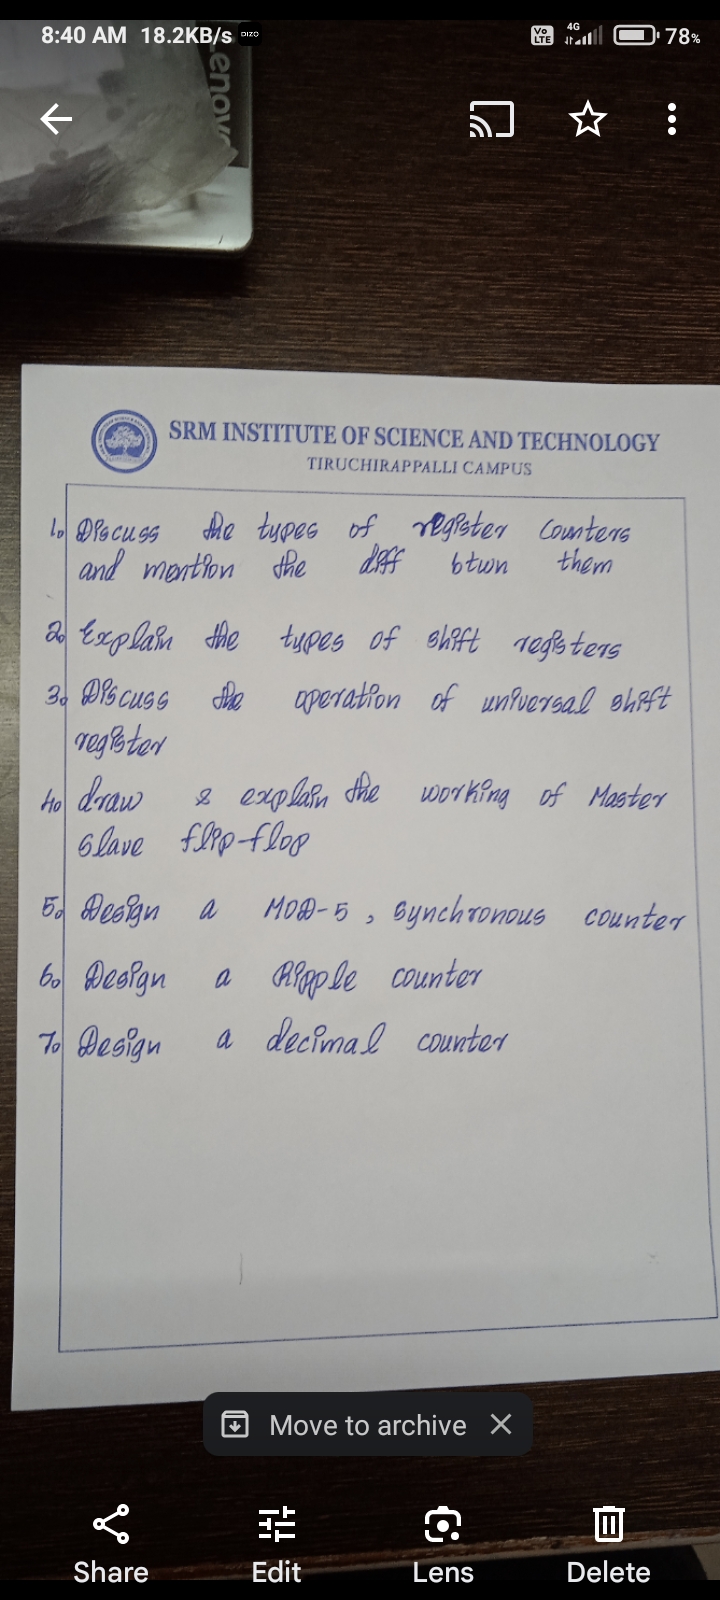 8:40 AM 18.2KB/s DIZO Vo LTE 4G 78%
Lenovo
SRM INSTITUTE OF SCIENCE AND TECHNOLOGY
TIRUCHIRAPPALLI CAMPUS
1. Discuss the types of register counters
and mention the diff btwn them
2. Explain the types of shift registers
3. Discuss the operation of universal shift
register
4. draw & explain the working of Master
slave flip-flop
5. Design a MOD-5, synchronous counter
6. Design a Ripple counter
7. Design a decimal counter
Move to archive
Share Edit Lens Delete